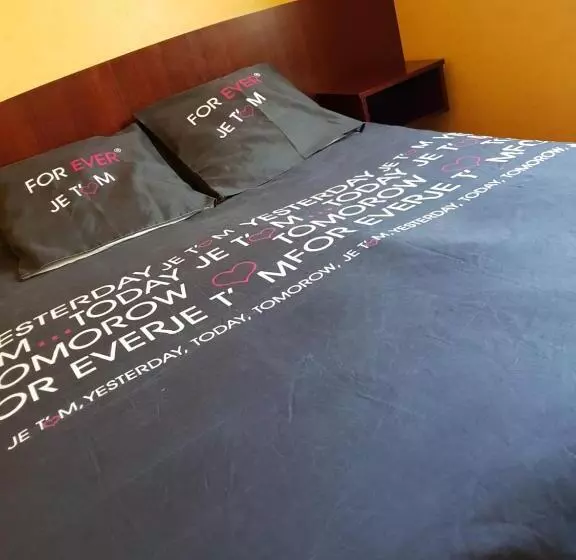 FOR EVER®
JE T'♡M
FOR EVER®
JE T'♡M
YESTERDAY JE T'♡M, YESTERDAY JE T'
M...TODAY JE T'♡M...TODAY JE T'
TOMOROW ♡ TOMOROW ♡
FOR EVERJE T'♡MFOR EVERJE T'♡MFO
JE T'♡M, YESTERDAY, TODAY, TOMORROW, JE T'♡M, YESTERDAY, TODAY, TOMORROW, JE